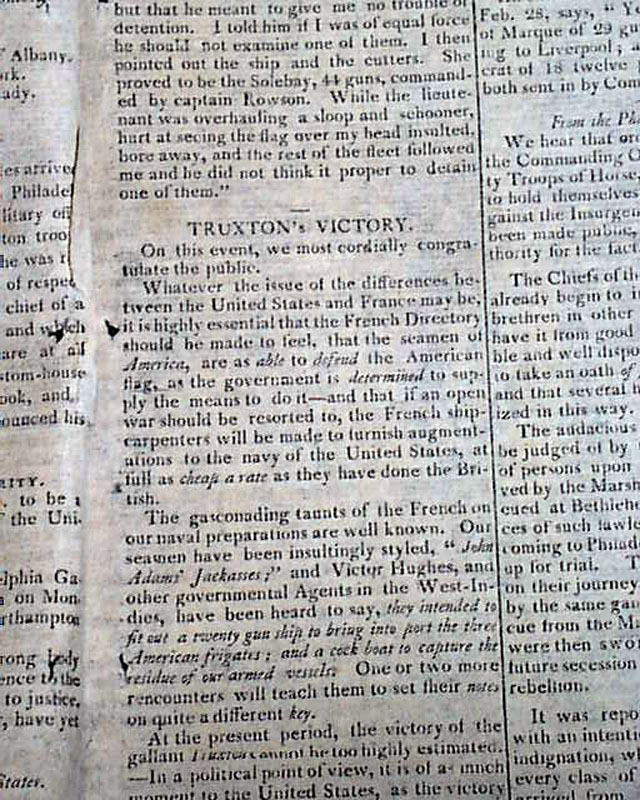 Albany.
ork.
ady.
es arrive
Philadel
litary off
ton troo
he was r
of respec
chief of a
and which
are at all
stom-house
ook, and
ounced his
RITY.
to be
the Uni.
elphia Ga-
on Mon
rthampton
rong body
ence to the
to justice,
, have yet
States.
but that he meant to give me no trouble or
detention. I told him if I was of equal force
he should not examine one of them. I then
pointed out the ship and the cutters. She
proved to be the Solebay, 44 guns, command-
ed by captain Rowson. While the lieute-
nant was overhauling a sloop and schooner,
hurt at seeing the flag over my head insulted,
bore away, and the rest of the fleet followed
me and he did not think it proper to detain
one of them."
TRUXTON's VICTORY.
On this event, we most cordially congra-
tulate the public.
Whatever the issue of the differences be-
tween the United States and France may be,
it is highly essential that the French Directory
should be made to feel, that the seamen of
America, are as able to defend the American
flag, as the government is determined to sup-
ply the means to do it—and that if an open
war should be resorted to, the French ship-
carpenters will be made to furnish augment-
ations to the navy of the United States, at
full as cheap a rate as they have done the Bri-
tish.
The gasconading taunts of the French on
our naval preparations are well known. Our
seamen have been insultingly styled, "John
Adams' Jackasses;" and Victor Hughes, and
other governmental Agents in the West-In-
dies, have been heard to say, they intended to
fit out a twenty gun ship to bring into port the three
American frigates; and a cock boat to capture the
residue of our armed vessels. One or two more
rencounters will teach them to set their notes
on quite a different key.
At the present period, the victory of the
gallant Truxton cannot be too highly estimated.
—In a political point of view, it is of a- much
moment to the United States, as the victory
Feb. 28, says, "Y
of Marque of 29 gu
ing to Liverpool;
crat of 18 twelve
both sent in by Com
From the Ph
We hear that or
the Commanding O
ty Troops of Horse,
to hold themselves
gainst the Insurgen
been made public,
thority for the fact
The Chiefs of th
already begin to i
brethren in other
have it from good
ble and well dispo
to take an oath of
and that several
ized in this way.
The audacious
be judged of by
of persons upon
ved by the Marsh
cued at Bethlehe
ces of such lawle
coming to Philad
up for trial. T
on their journey
by the same gan
cue from the Ma
were then swor
future secession
rebellion.
It was repo
with an intenti
indignation, w
every class of
arrived from